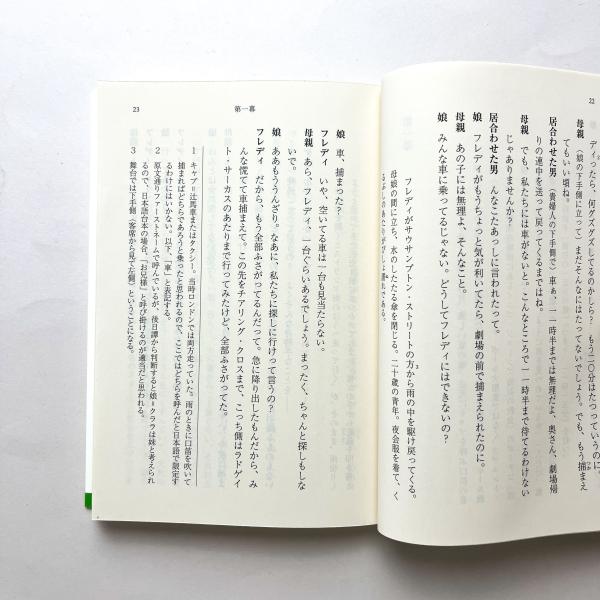 22
ディったら、何グズグズしてるのかしら？ もう二〇分はたっているのに。
母親 （娘の下手側に立って）まだそんなにはたってないでしょう。でも、もう捕まえ
てもいい頃ね。
居合わせた男 （貴婦人の下手側で）車ぁ、一一時半までは無理だよ、奥さん、劇場帰
りの連中を送って戻ってくるまではね。
母親 でも、私たちには車がないと。こんなところで一一時半まで待てるわけない
じゃありませんか？
居合わせた男 んなこたあっしに言われたって。
娘 フレディがもうちょっと気が利いてたら、劇場の前で捕まえられたのに。
母親 あの子には無理よ、そんなこと。
娘 みんな車に乗ってるじゃない。どうしてフレディにはできないの？
フレディがサウサンプトン・ストリートの方から雨の中を駆け戻ってくる。
母娘の間に立ち、水のしたたる傘を閉じる。二十歳の青年。夜会服を着て、く
るぶしのあたりがびしょ濡れである。
第一幕
23
娘 車、捕まった？
フレディ いや、空いてる車は一台も見当たらない。
母親 あら、フレディ、一台ぐらいあるでしょう。まったく、ちゃんと探しもしな
いで。
娘 ああもううんざり。なあに、私たちに探しに行けって言うの？
フレディ だから、もう全部ふさがってるんだって。急に降り出したもんだから、み
んな慌てて車捕まえて。この先をチアリング・クロスまで、こっち側はラドゲイ
ト・サーカスのあたりまで行ってみたけど、全部ふさがってた。
1 キャブ＝辻馬車またはタクシー。当時ロンドンでは両方走っていた。雨のときに口笛を吹いて
捕まればどちらであろうと乗ったと思われるので、ここではどちらを呼んだと日本語で限定す
るわけにはいかない。以下、「車」と表記する。
2 原文通りファーストネームで呼んでいるが、後日譚から判断すると娘＝クララは妹と考えられ
るので、日本語台本の場合、「お兄様」と呼び掛けるのが適当だと思われる。
3 舞台では下手側（客席から見て左側）ということになる。